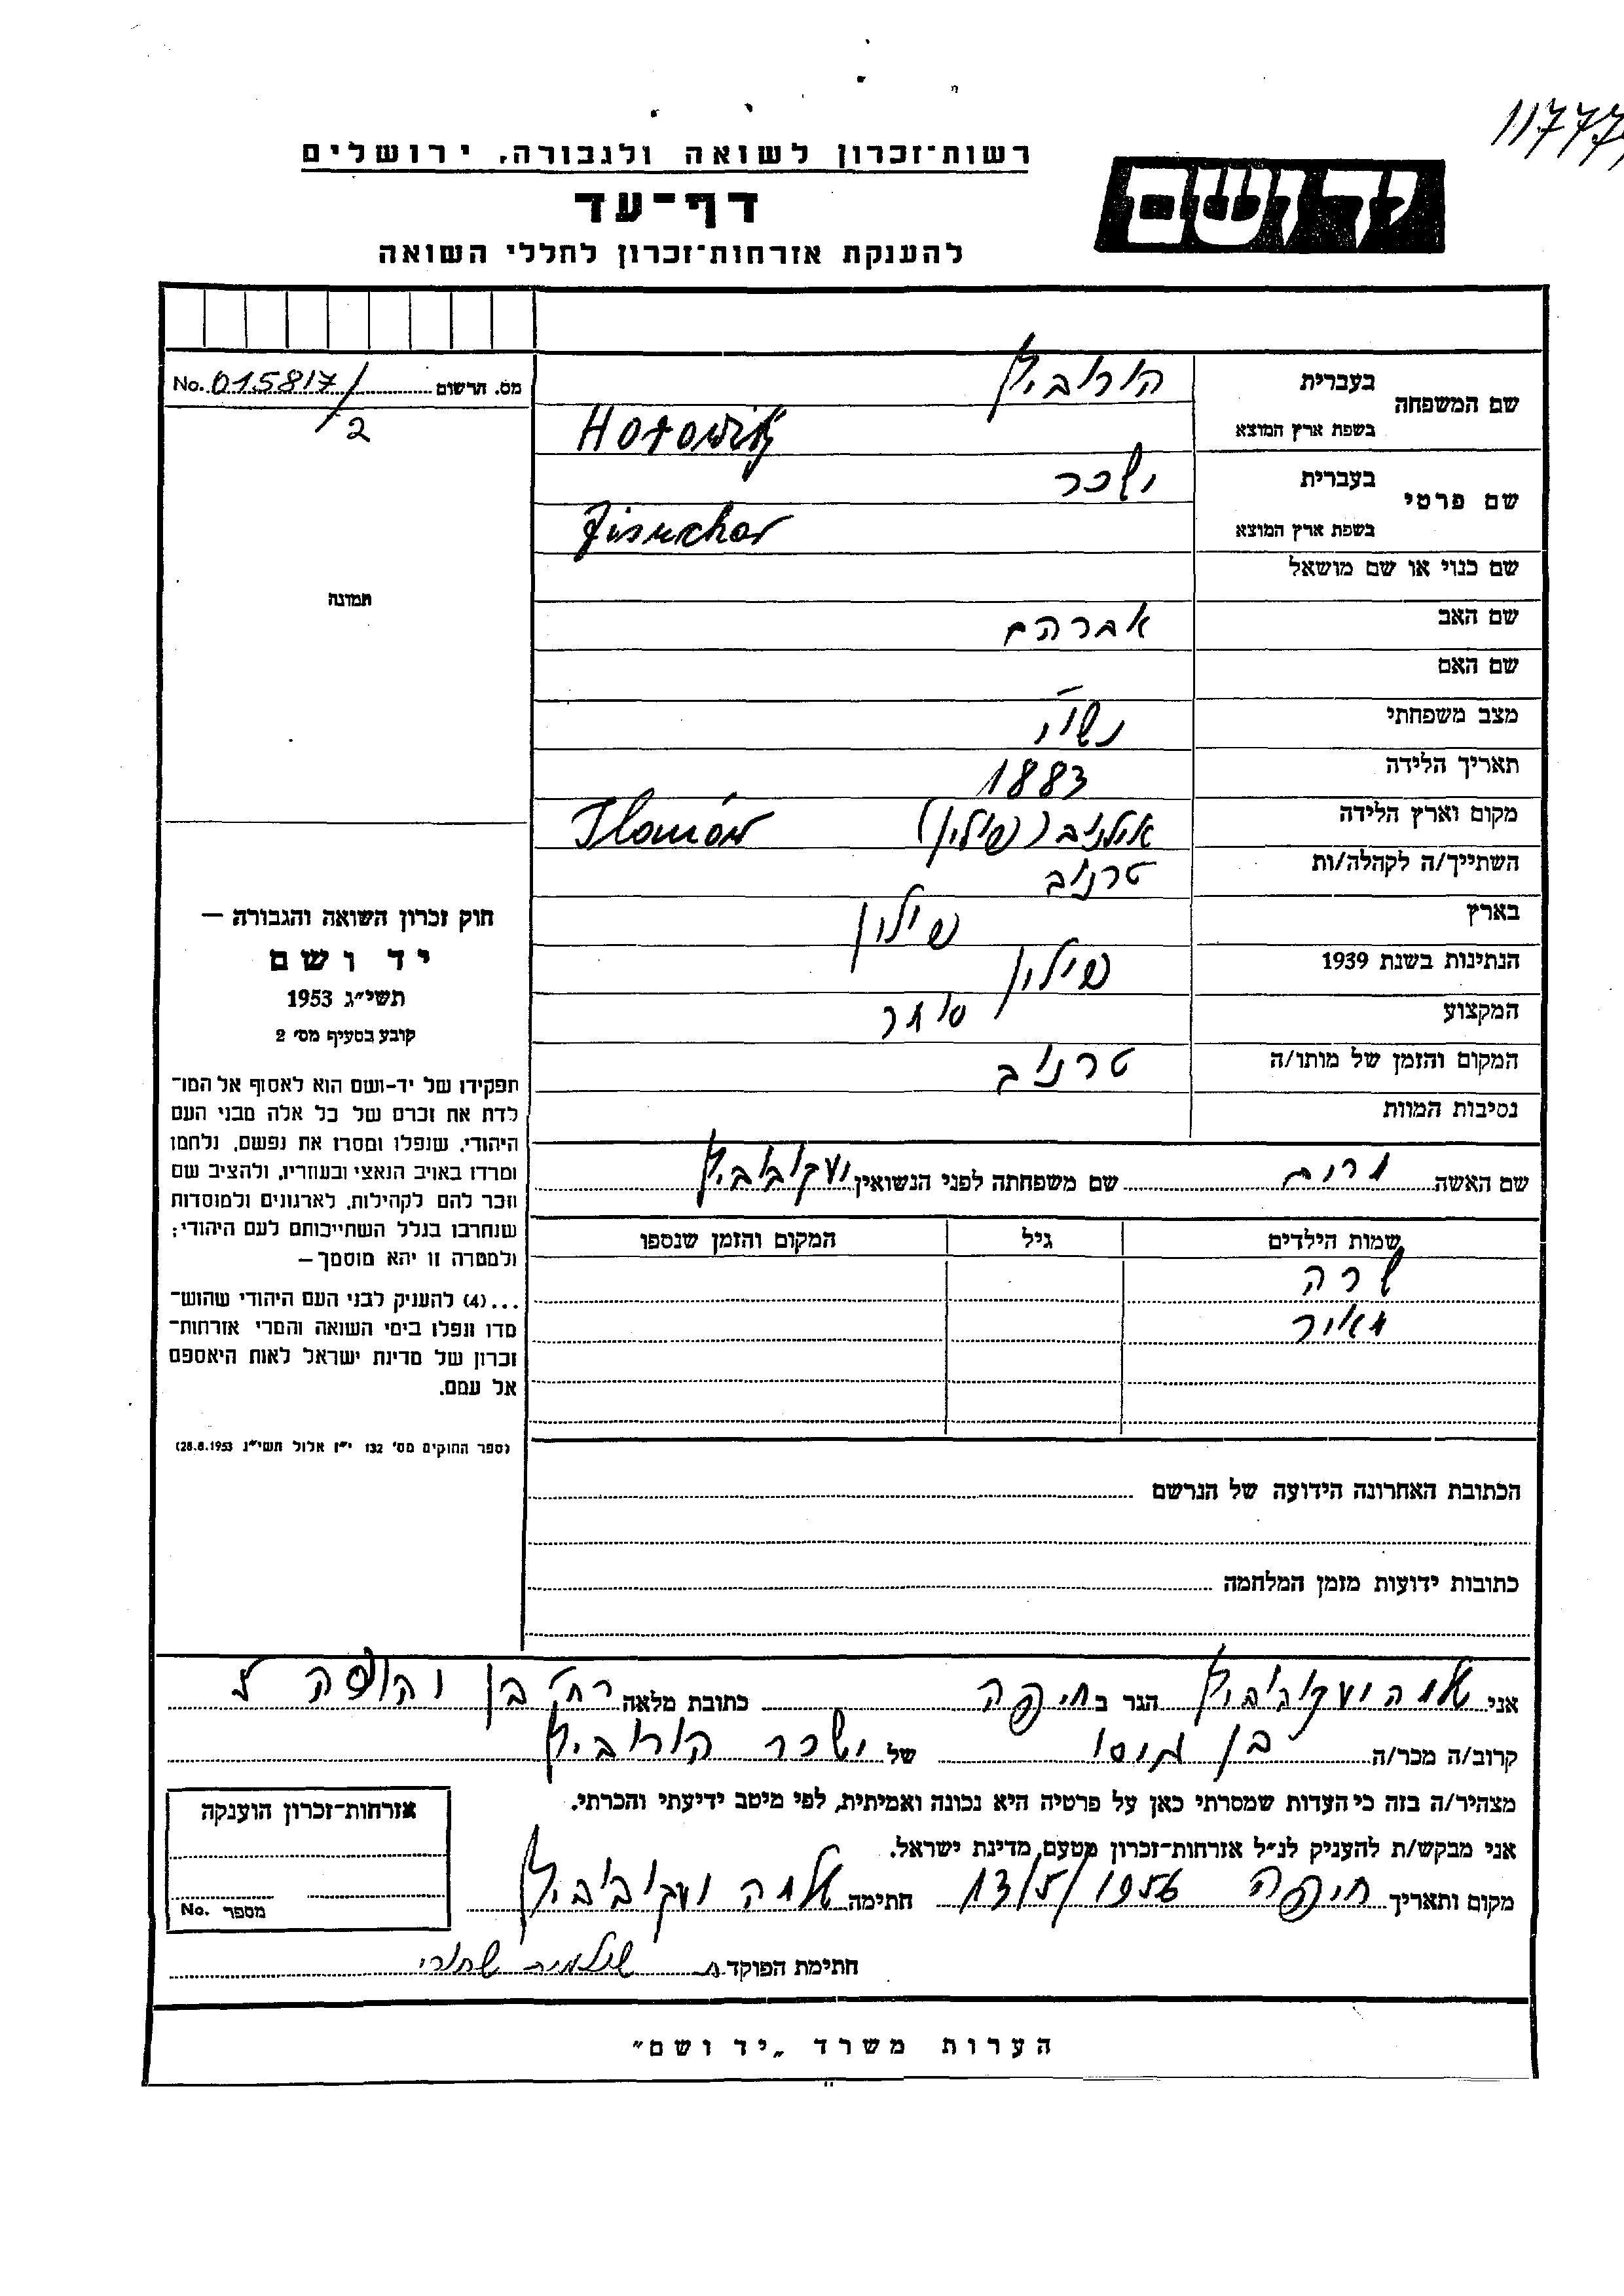 117771
רשות־זכרון לשואה ולגבורה, ירושלים
יד ושם
דף־עד
להענקת אזרחות־זכרון לחללי השואה
מס. הרשום No. 015817/2
תמונה
שם המשפחה בעברית הורוביץ
בשפת ארץ המוצא Horowitz
שם פרטי בעברית יששכר
בשפת ארץ המוצא Jisuchar
שם כנוי או שם מושאל
שם האב אברהם
שם האם
מצב משפחתי נשוי
תאריך הלידה 1883
מקום וארץ הלידה (פולין)
השתייך/ה לקהלה/ות טרנוב
בארץ פולין
הנתינות בשנת 1939 פולין
המקצוע סוחר
המקום והזמן של מותו/ה טרנוב
נסיבות המוות
שם האשה מרים שם משפחתה לפני הנשואין יעקובוביץ
שמות הילדים גיל המקום והזמן שנספו
שרה
מאיר
הכתובת האחרונה הידועה של הנרשם
כתובות ידועות מזמן המלחמה
חוק זכרון השואה והגבורה —
יד ושם
תשי״ג 1953
קובע בסעיף מס׳ 2
תפקידו של יד־ושם הוא לאסוף אל המו־
לדת את זכרם של כל אלה מבני העם
היהודי, שנפלו ומסרו את נפשם, נלחמו
ומרדו באויב הנאצי ובעוזריו, ולהציב שם
וזכר להם לקהילות, לארגונים ולמוסדות
שנחרבו בגלל השתייכותם לעם היהודי;
ולמטרה זו יהא מוסמך —
...(4) להענקת לבני העם היהודי שהוש־
מדו ונפלו בימי השואה והמרי אזרחות־
זכרון של מדינת ישראל לאות היאספם
אל עמם.
(ספר החוקים מס׳ 132 י״ז אלול תשי״ג 28.8.1953)
אני שלמה יעקובוביץ הגר ב חיפה כתובת מלאה רח׳ בן יהודה
קרוב/ה מכר/ה בן גיסו של יששכר הורוביץ
מצהיר/ה בזה כי העדות שמסרתי כאן על פרטיה היא נכונה ואמיתית, לפי מיטב ידיעתי והכרתי.
אני מבקש/ת להעניק לנ״ל אזרחות־זכרון מטעם מדינת ישראל.
מקום ותאריך חיפה 13/5/1956 חתימה שלמה יעקובוביץ
חתימת הפוקד
אזרחות־זכרון הוענקה
מספר No.
הערות משרד „יד ושם״